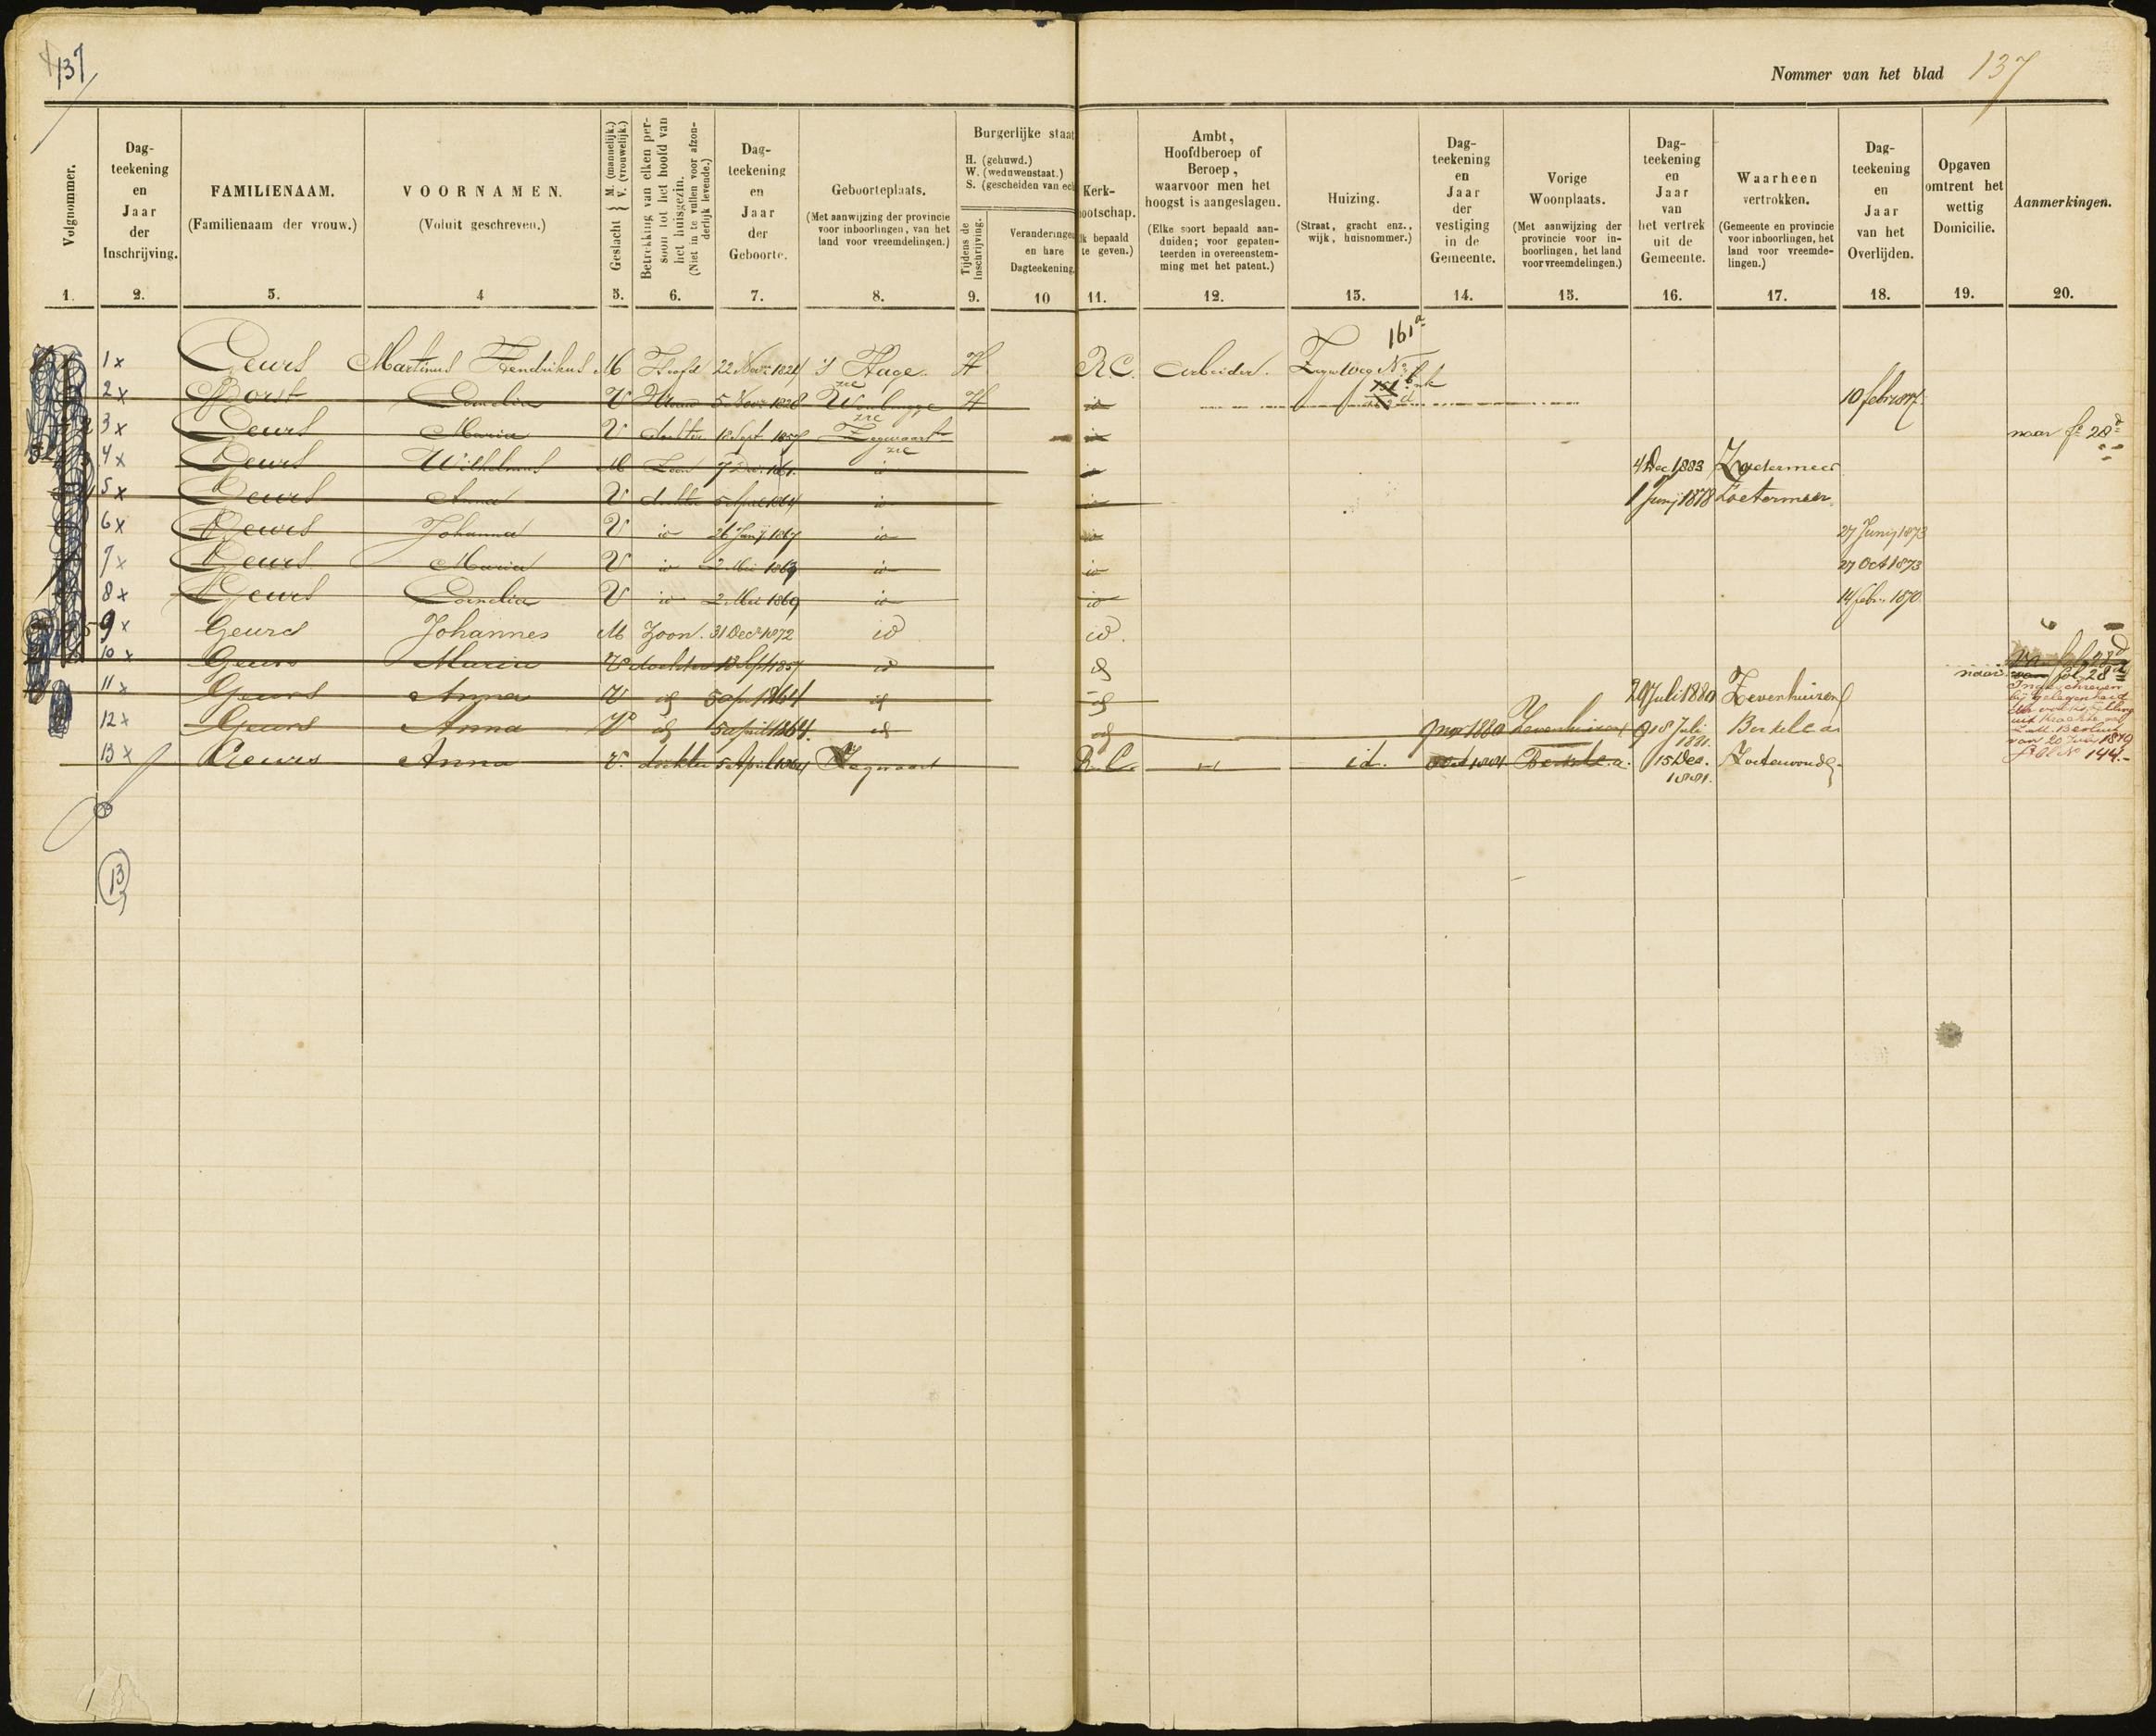 137
Nommer van het blad 137
Volgnommer.
Dag-
teekening
en
Jaar
der
Inschrijving.
FAMILIENAAM.
(Familienaam der vrouw.)
VOORNAMEN.
(Voluit geschreven.)
Geslacht { M. (mannelijk.) V. (vrouwelijk.)
Betrekking van elken per-
soon tot het hoofd van
het huisgezin.
(Niet in te vullen voor afzon-
derlijk levende.)
Dag-
teekening
en
Jaar
der
Geboorte.
Geboorteplaats.
(Met aanwijzing der provincie
voor inboorlingen, van het
land voor vreemdelingen.)
Burgerlijke staat
H. (gehuwd.)
W. (weduwenstaat.)
S. (gescheiden van ech
Tijdens de
inschrijving.
Veranderingen
en hare
Dagteekening.
Kerk-
ootschap.
lk bepaald
te geven.)
Ambt,
Hoofdberoep of
Beroep,
waarvoor men het
hoogst is aangeslagen.
(Elke soort bepaald aan-
duiden; voor gepaten-
teerden in overeenstem-
ming met het patent.)
Huizing.
(Straat, gracht enz.,
wijk, huisnommer.)
Dag-
teekening
en
Jaar
der
vestiging
in de
Gemeente.
Vorige
Woonplaats.
(Met aanwijzing der
provincie voor in-
boorlingen, het land
voor vreemdelingen.)
Dag-
teekening
en
Jaar
van
het vertrek
uit de
Gemeente.
Waarheen
vertrokken.
(Gemeente en provincie
voor inboorlingen, het
land voor vreemde-
lingen.)
Dag-
teekening
en
Jaar
van het
Overlijden.
Opgaven
omtrent het
wettig
Domicilie.
Aanmerkingen.
1. 2. 3. 4 5. 6. 7. 8. 9. 10 11. 12. 13. 14. 15. 16. 17. 18. 19. 20.
161a
1x Geurs Martinus Hendrikus M Hoofd 22 Novr 1824 's Hage. H R.C. Arbeider.
2x Borst Cornelia V Vrouw 5 Novr 1828 H io
3x Geurs Maria V dochter 18 Sept 1857 Zegwaart io naar fo 28d
4x Geurs Wilhelmus M Zoon io io 4 Dec 1883 Zoetermeer
5x Geurs Anna V dochter 5 April 1864 io io 1 Junij 1878 Zoetermeer
6x Geurs Johanna V io io io 27 Junij 1873
7x Geurs Maria V io 2 Mei 1869 io io 27 Oct 1873
8x Geurs Cornelia V io 2 Mei 1869 io io 14 febr. 1870
9x Geurs Johannes M Zoon. 31 Decr 1872 id id.
10x Geurs Maria V dochter 18 Spt 1857 id id naar fol. 28d
11x Geurs Anna V id 5 Apr. 1864 id id 29 Juli 1880 Zevenhuizen
12x Geurs Anna V id 5 april 1864. id id Zevenhuizen 18 Juli
1881. Berkel
13x Geurs Anna V. dochter 5 April 1864 Zegwaart R.C. id. Berkel 15 Dec.
1881. Zoeterwoude
Ingeschreven
bij gelegenheid
der volkstelling
uit kracht
Besluit
van 20 1879
No 144.
13